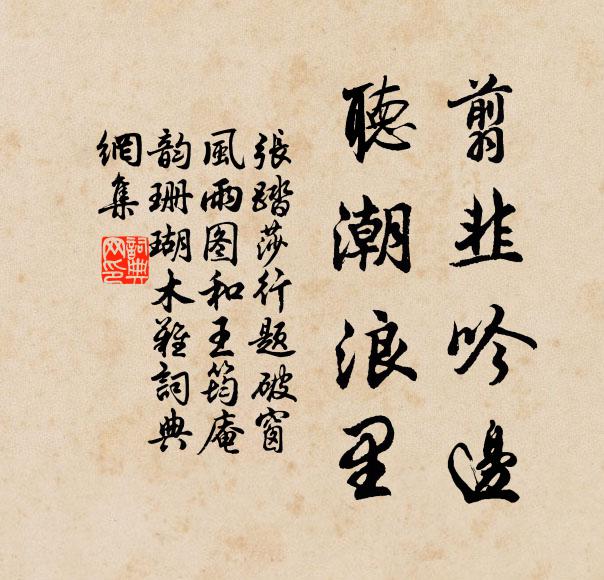 翦韭吟邊
聽潮浪里
張踏莎行題破窗
風雨图和王筠庵
韵珊瑚木難詞典
網集
詞典网印